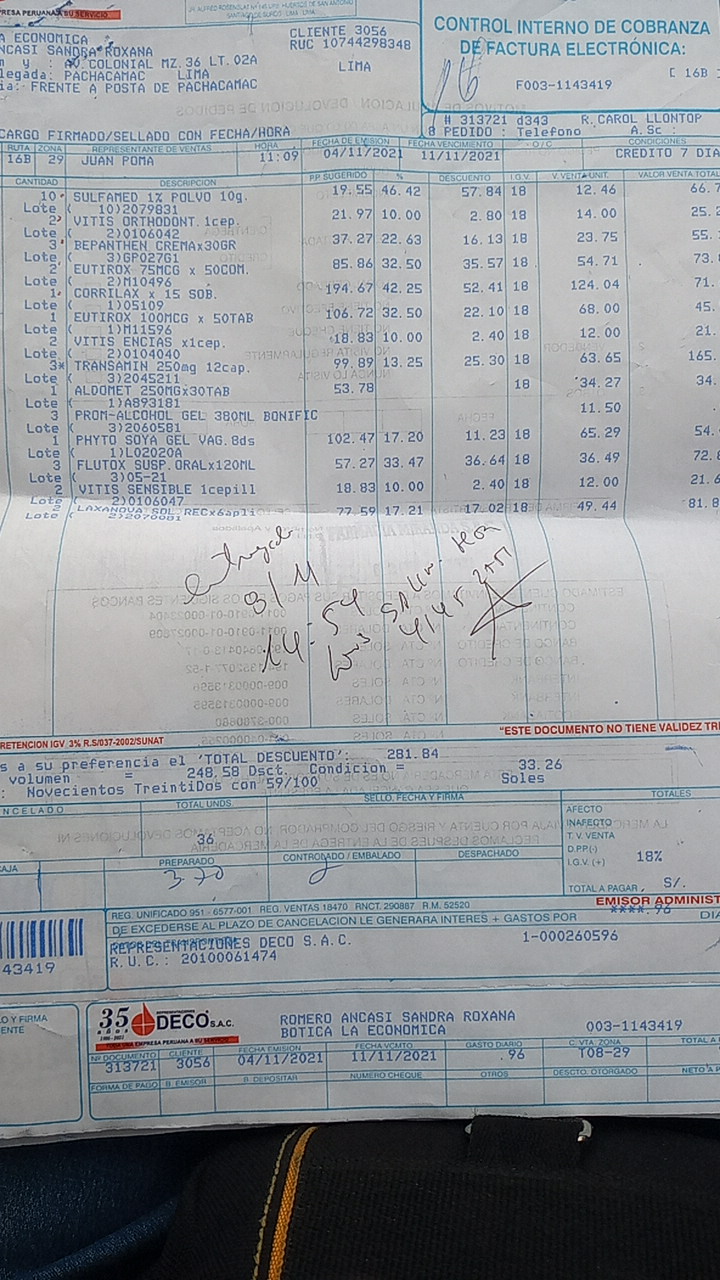 PRESA PERUANA A SU SERVICIO
JR. ALFRED ROSENBLAT Nº 145 URB. HUERTOS DE SAN ANTONIO
SANTIAGO DE SURCO - LIMA - LIMA
A ECONOMICA
NCASI SANDRA ROXANA
n y : AV.COLONIAL MZ.36 LT.02A
legada: PACHACAMAC LIMA
ia: FRENTE A POSTA DE PACHACAMAC
CLIENTE 3056
RUC 10744298348
LIMA
CONTROL INTERNO DE COBRANZA
DE FACTURA ELECTRÓNICA:
F003-1143419 [ 16B
# 313721 d343 R.CAROL LLONTOP
8 PEDIDO : Telefono A.Sc :
CARGO FIRMADO/SELLADO CON FECHA/HORA
RUTA ZONA REPRESENTANTE DE VENTAS HORA FECHA DE EMISION FECHA VENCIMIENTO O/C CONDICIONES
16B 29 JUAN POMA 11:09 04/11/2021 11/11/2021 CREDITO 7 DIA
CANTIDAD DESCRIPCION P.P. SUGERIDO % DESCUENTO I.G.V. V.VENTA UNIT. VALOR VENTA TOTAL
10 SULFAMED 1% POLVO 10g. 19.55 46.42 57.84 18 12.46 66.7
Lote ( 10)2079831
2 VITIS ORTHODONT.1cep. 21.97 10.00 2.80 18 14.00 25.2
Lote ( 2)0106042
3 BEPANTHEN CREMAx30GR 37.27 22.63 16.13 18 23.75 55.
Lote ( 3)GP027G1
2 EUTIROX 75MCG x 50COM. 85.86 32.50 35.57 18 54.71 73.
Lote ( 2)M10496
1 CORRILAX x 15 SOB. 194.67 42.25 52.41 18 124.04 71.
Lote ( 1)05109
1 EUTIROX 100MCG x 50TAB 106.72 32.50 22.10 18 68.00 45.
Lote ( 1)M11596
2 VITIS ENCIAS x1cep. 18.83 10.00 2.40 18 12.00 21.
Lote ( 2)0104040
3* TRANSAMIN 250mg 12cap. 99.89 13.25 25.30 18 63.65 165.
Lote ( 3)2045211
1 ALDOMET 250MGx30TAB 53.78 18 34.27 34.
Lote ( 1)A893181
3 PROM-ALCOHOL GEL 380ML BONIFIC 11.50
Lote ( 3)2060581
1 PHYTO SOYA GEL VAG.8ds 102.47 17.20 11.23 18 65.29 54.
Lote ( 1)L02020A
3 FLUTOX SUSP.ORALx120ML 57.27 33.47 36.64 18 36.49 72.8
Lote ( 3)05-21
2 VITIS SENSIBLE 1cepill 18.83 10.00 2.40 18 12.00 21.6
Lote ( 2)0106047
LAXANOVA SOL.RECx6apli 77.59 17.21 17.02 18 49.44 81.8
Lote ( 2)2070081
entregado
8/11
14:54
RETENCION IGV 3% R.S/037-2002/SUNAT
"ESTE DOCUMENTO NO TIENE VALIDEZ TRI
s a su preferencia el 'TOTAL DESCUENTO': 281.84
volumen = 248.58 Dsct. Condicion = 33.26
: Novecientos TreintiDos con 59/100 Soles
NCELADO TOTAL UNDS. SELLO, FECHA Y FIRMA TOTALES
36
AFECTO
INAFECTO
T. V. VENTA
D.P.P.(-)
I.G.V. (+) 18%
TOTAL A PAGAR S/.
CAJA PREPARADO CONTROLADO / EMBALADO DESPACHADO
EMISOR ADMINIST
****.96
REG. UNIFICADO 951 - 6577-001 REG. VENTAS 18470 RNCT. 290887 R.M. 52520
DE EXCEDERSE AL PLAZO DE CANCELACION LE GENERARA INTERES + GASTOS POR DIA
REPRESENTACIONES DECO S.A.C. 1-000260596
R.U.C.: 20100061474
43419
O Y FIRMA
ENTE
35 años DECO S.A.C.
ROMERO ANCASI SANDRA ROXANA 003-1143419
BOTICA LA ECONOMICA
Nº DOCUMENTO CLIENTE FECHA EMISION FECHA VCMTO GASTO DIARIO C. VTA. ZONA TOTAL A
313721 3056 04/11/2021 11/11/2021 .96 T08-29
FORMA DE PAGO B. EMISOR B. DEPOSITAR NUMERO CHEQUE OTROS DESCTO. OTORGADO NETO A P